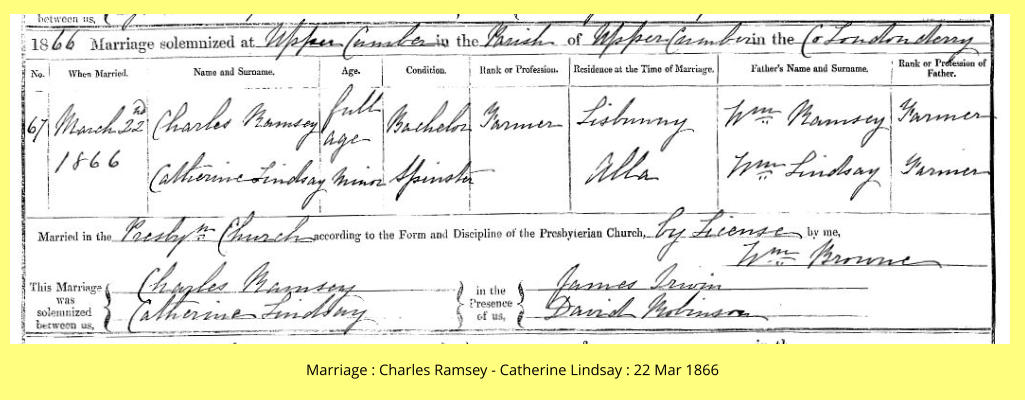 between us,
1866 Marriage solemnized at Upper Cumber in the Parish of Upper Cumber in the Co Londonderry
No. When Married. Name and Surname. Age. Condition. Rank or Profession. Residence at the Time of Marriage. Father's Name and Surname. Rank or Profession of Father.
67 March 22nd 1866 Charles Ramsey full age Bachelor Farmer Lisbunny Wm Ramsey Farmer
Catherine Lindsay minor Spinster Alla Wm Lindsay Farmer
Married in the Presbyn Church according to the Form and Discipline of the Presbyterian Church, by License by me,
Wm Browne
This Marriage was solemnized between us,
Charles Ramsey
Catherine Lindsay
in the Presence of us,
James Irwin
David Robinson
Marriage : Charles Ramsey - Catherine Lindsay : 22 Mar 1866